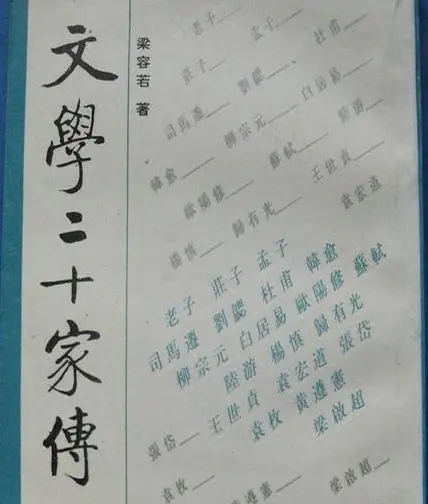 文學二十家傳
梁容若 著
老子___ 孟子___ 杜甫___
莊子___ 劉勰___ 白居易___
司馬遷___ 柳宗元___ 陸游___
韓愈___ 蘇軾___ 王世貞___
歐陽修___
楊慎___ 歸有光___ 袁宏道
老子 莊子 孟子
司馬遷 劉勰 杜甫 韓愈
柳宗元 白居易 歐陽修 蘇軾
陸游 楊慎 歸有光
王世貞 袁宏道 張岱
袁枚 黃遵憲
梁啟超
張岱___
袁枚___ 遵憲___ 梁啟超___